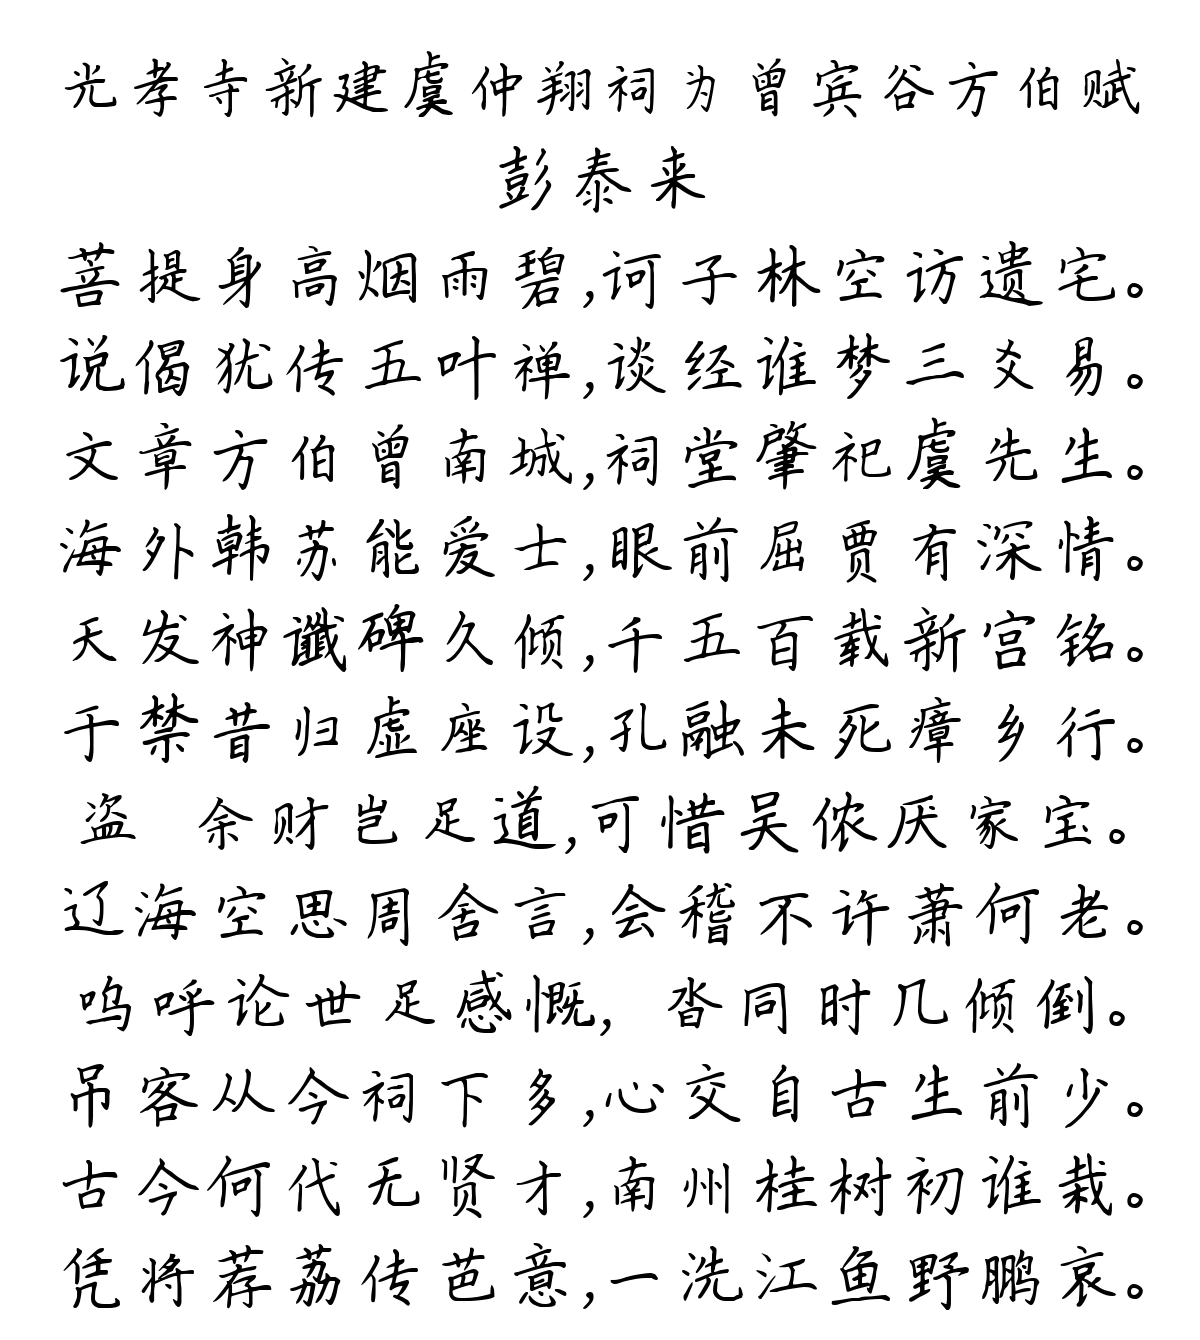 光孝寺新建虞仲翔祠为曾宾谷方伯赋
彭泰来
菩提身高烟雨碧,诃子林空访遗宅。
说偈犹传五叶禅,谈经谁梦三爻易。
文章方伯曾南城,祠堂肇祀虞先生。
海外韩苏能爱士,眼前屈贾有深情。
天发神谶碑久倾,千五百载新宫铭。
于禁昔归虚座设,孔融未死瘴乡行。
盗 余财岂足道,可惜吴侬厌家宝。
辽海空思周舍言,会稽不许萧何老。
呜呼论世足感慨, 沓同时几倾倒。
吊客从今祠下多,心交自古生前少。
古今何代无贤才,南州桂树初谁栽。
凭将荐荔传芭意,一洗江鱼野鹏哀。